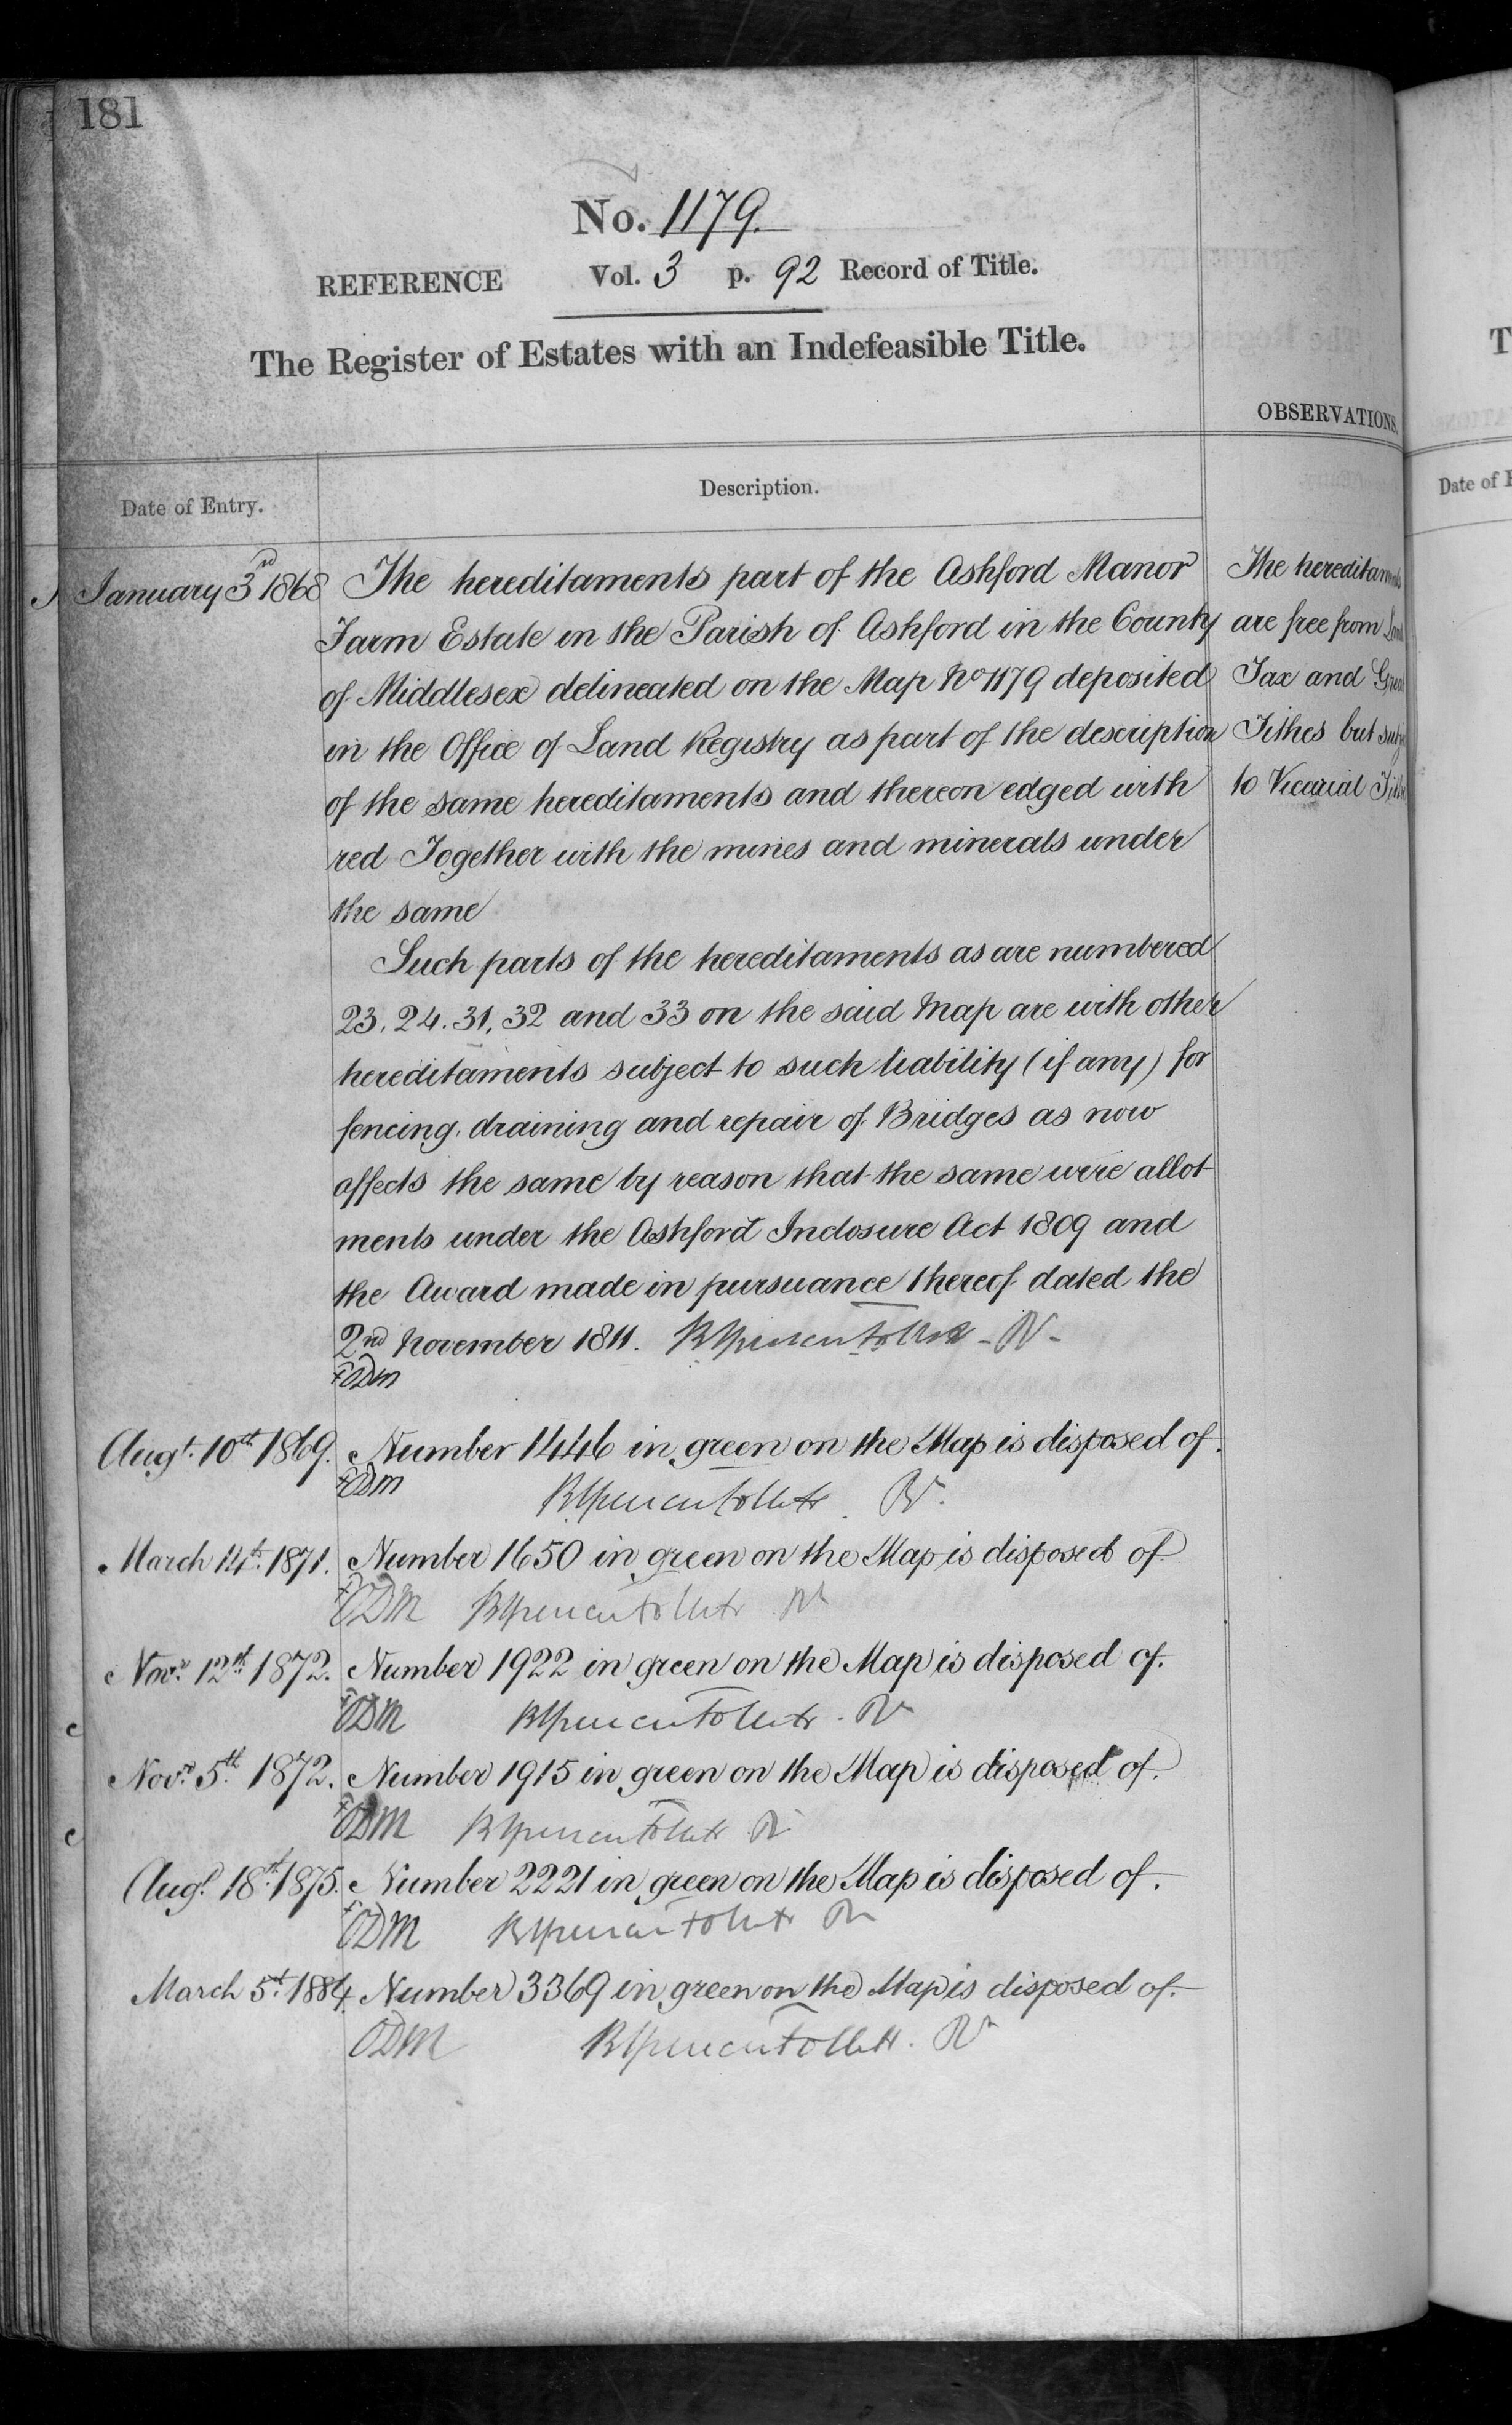 181
No. 1179.
REFERENCE Vol. 3 p. 92 Record of Title.
The Register of Estates with an Indefeasible Title.
OBSERVATIONS.
Date of Entry.
Description.
January 3rd 1868
The hereditaments part of the Ashford Manor
Farm Estate in the Parish of Ashford in the County
of Middlesex delineated on the Map No 1179 deposited
in the Office of Land Registry as part of the description
of the same hereditaments and thereon edged with
red Together with the mines and minerals under
the same
Such parts of the hereditaments as are numbered
23. 24. 31, 32 and 33 on the said Map are with other
hereditaments subject to such liability (if any) for
fencing, draining and repair of Bridges as now
affects the same by reason that the same were allot
ments under the Ashford Inclosure Act 1809 and
the Award made in pursuance thereof dated the
2nd November 1811.
ODM
The hereditaments
are free from Land
Tax and Great
Tithes but
to Vicarial
Augt. 10th 1869. Number 1446 in green on the Map is disposed of.
ODM
March 14th 1871. Number 1650 in green on the Map is disposed of
ODM
Novr. 12th 1872. Number 1922 in green on the Map is disposed of.
ODM
Novr. 5th 1872. Number 1915 in green on the Map is disposed of.
ODM
Augt. 18th 1875. Number 2221 in green on the Map is disposed of.
ODM
March 5th 1884. Number 3369 in green on the Map is disposed of.
ODM
T
Date of